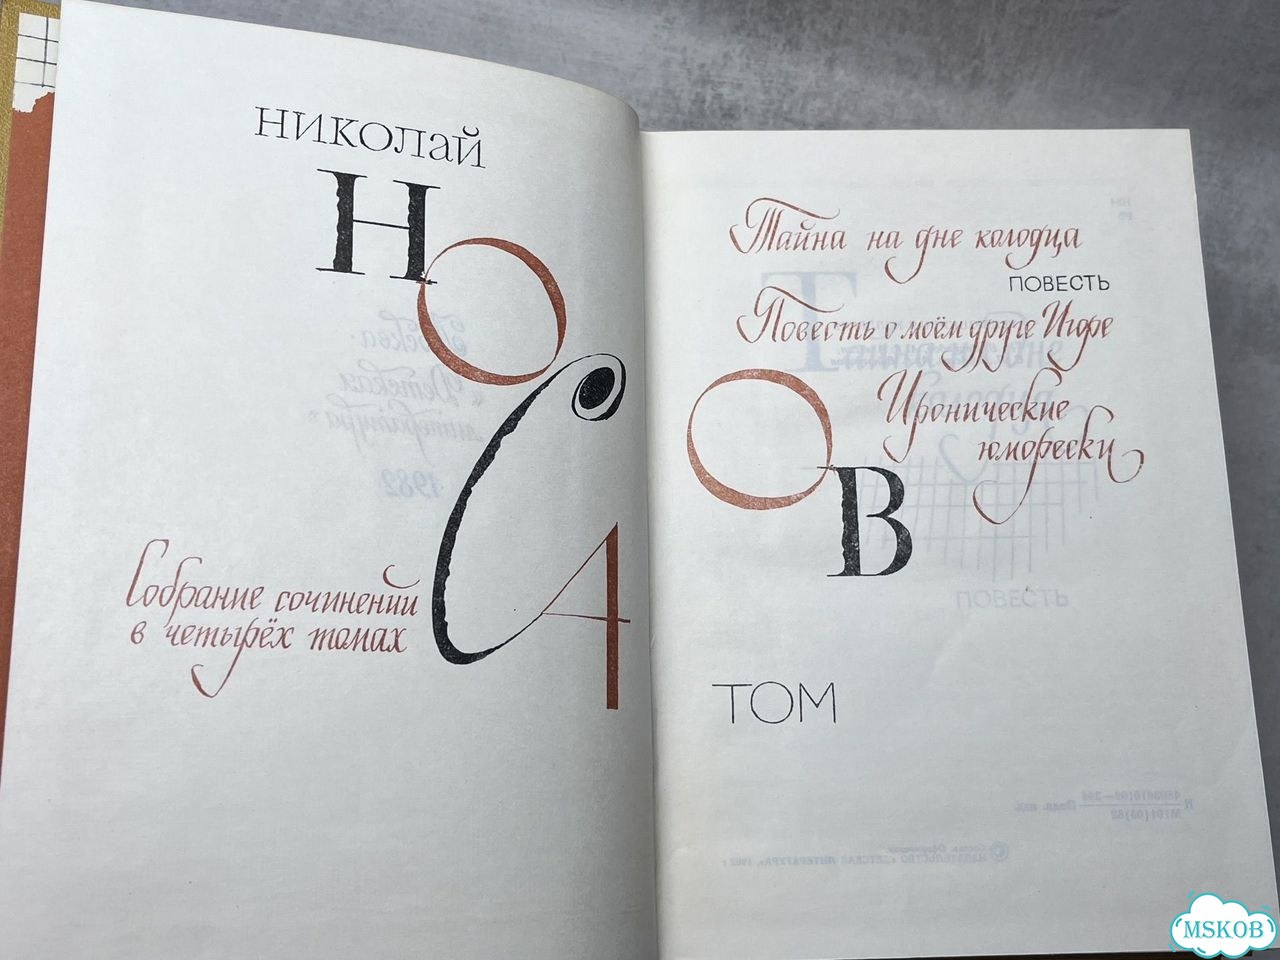 НИКОЛАЙ
НОСОВ
Собрание сочинений
в четырёх томах
4
Тайна на дне колодца
ПОВЕСТЬ
Повесть о моём друге Игоре
Иронические
юморески
ТОМ
Москва
"Детская
литература"
1982
ПОВЕСТЬ
MSKOB